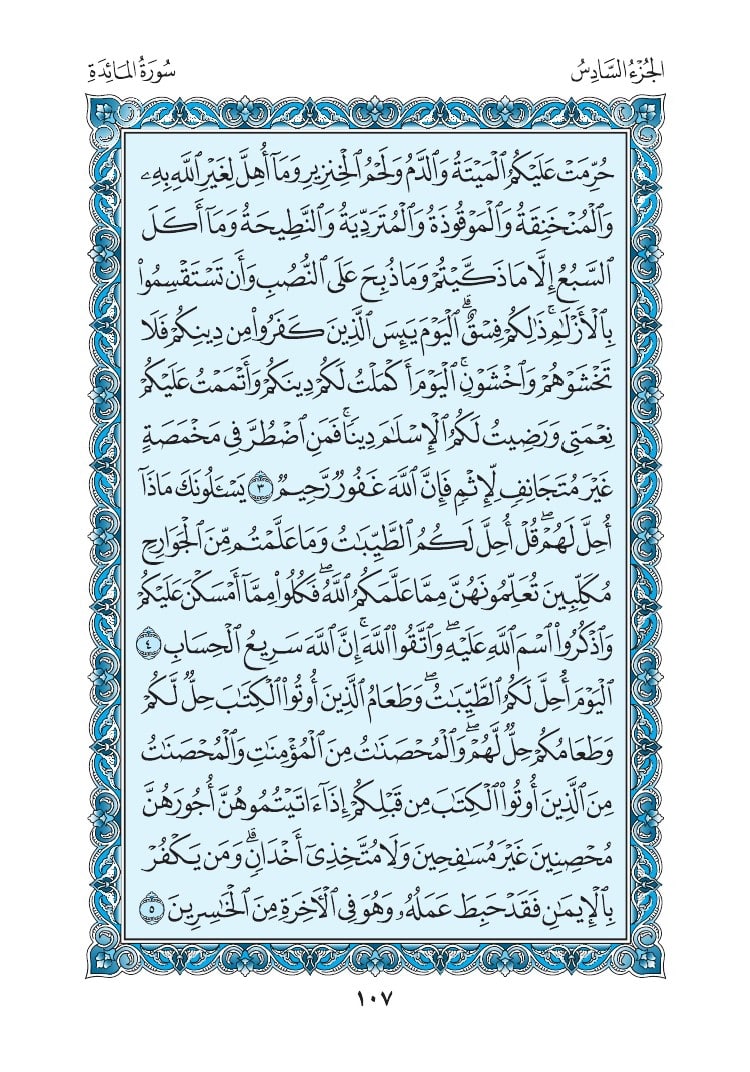 الجُزْءُ السَّادِسُ
سُورَةُ المَائِدَةِ
حُرِّمَتۡ عَلَيۡكُمُ ٱلۡمَيۡتَةُ وَٱلدَّمُ وَلَحۡمُ ٱلۡخِنزِيرِ وَمَآ أُهِلَّ لِغَيۡرِ ٱللَّهِ بِهِۦ
وَٱلۡمُنۡخَنِقَةُ وَٱلۡمَوۡقُوذَةُ وَٱلۡمُتَرَدِّيَةُ وَٱلنَّطِيحَةُ وَمَآ أَكَلَ
ٱلسَّبُعُ إِلَّا مَا ذَكَّيۡتُمۡ وَمَا ذُبِحَ عَلَى ٱلنُّصُبِ وَأَن تَسۡتَقۡسِمُواْ
بِٱلۡأَزۡلَٰمِۚ ذَٰلِكُمۡ فِسۡقٌۗ ٱلۡيَوۡمَ يَئِسَ ٱلَّذِينَ كَفَرُواْ مِن دِينِكُمۡ فَلَا
تَخۡشَوۡهُمۡ وَٱخۡشَوۡنِۚ ٱلۡيَوۡمَ أَكۡمَلۡتُ لَكُمۡ دِينَكُمۡ وَأَتۡمَمۡتُ عَلَيۡكُمۡ
نِعۡمَتِي وَرَضِيتُ لَكُمُ ٱلۡإِسۡلَٰمَ دِينٗاۚ فَمَنِ ٱضۡطُرَّ فِي مَخۡمَصَةٍ
غَيۡرَ مُتَجَانِفٖ لِّإِثۡمٖ فَإِنَّ ٱللَّهَ غَفُورٞ رَّحِيمٞ ٣ يَسۡـَٔلُونَكَ مَاذَآ
أُحِلَّ لَهُمۡۖ قُلۡ أُحِلَّ لَكُمُ ٱلطَّيِّبَٰتُ وَمَا عَلَّمۡتُم مِّنَ ٱلۡجَوَارِحِ
مُكَلِّبِينَ تُعَلِّمُونَهُنَّ مِمَّا عَلَّمَكُمُ ٱللَّهُۖ فَكُلُواْ مِمَّآ أَمۡسَكۡنَ عَلَيۡكُمۡ
وَٱذۡكُرُواْ ٱسۡمَ ٱللَّهِ عَلَيۡهِۖ وَٱتَّقُواْ ٱللَّهَۚ إِنَّ ٱللَّهَ سَرِيعُ ٱلۡحِسَابِ ٤
ٱلۡيَوۡمَ أُحِلَّ لَكُمُ ٱلطَّيِّبَٰتُۖ وَطَعَامُ ٱلَّذِينَ أُوتُواْ ٱلۡكِتَٰبَ حِلّٞ لَّكُمۡ
وَطَعَامُكُمۡ حِلّٞ لَّهُمۡۖ وَٱلۡمُحۡصَنَٰتُ مِنَ ٱلۡمُؤۡمِنَٰتِ وَٱلۡمُحۡصَنَٰتُ
مِنَ ٱلَّذِينَ أُوتُواْ ٱلۡكِتَٰبَ مِن قَبۡلِكُمۡ إِذَآ ءَاتَيۡتُمُوهُنَّ أُجُورَهُنَّ
مُحۡصِنِينَ غَيۡرَ مُسَٰفِحِينَ وَلَا مُتَّخِذِيٓ أَخۡدَانٖۗ وَمَن يَكۡفُرۡ
بِٱلۡإِيمَٰنِ فَقَدۡ حَبِطَ عَمَلُهُۥ وَهُوَ فِي ٱلۡأٓخِرَةِ مِنَ ٱلۡخَٰسِرِينَ ٥
١٠٧